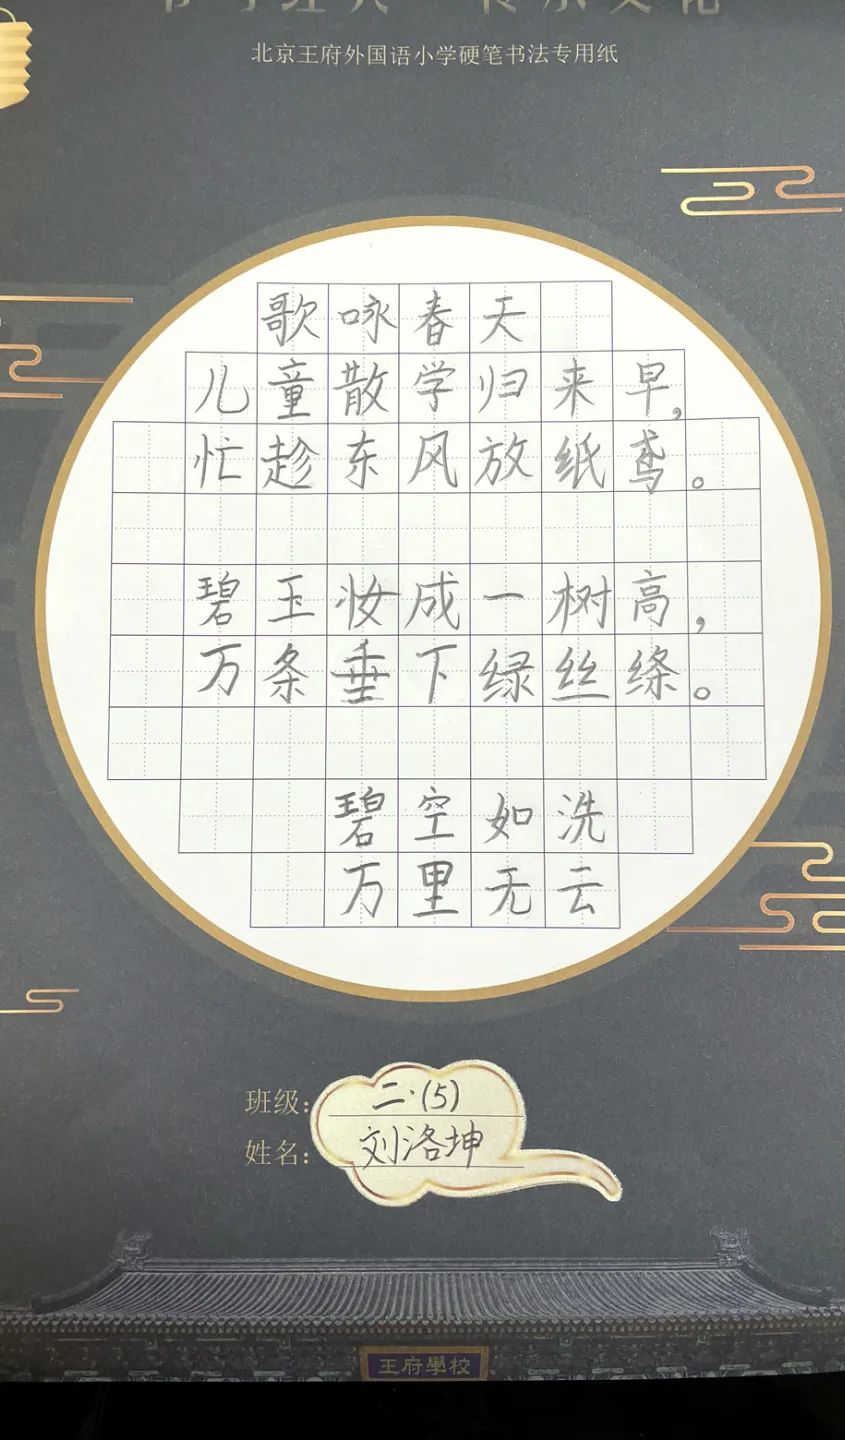 北京王府外国语小学硬笔书法专用纸
歌咏春天
儿童散学归来早,
忙趁东风放纸鸢。
碧玉妆成一树高,
万条垂下绿丝绦。
碧空如洗
万里无云
班级: 二·(5)
姓名: 刘洛坤
王府學校